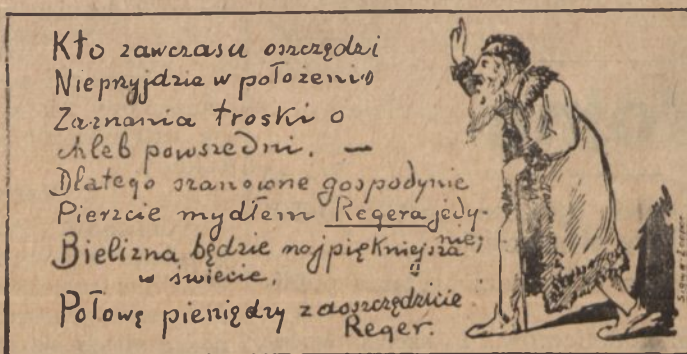 Kto zawczasu oszczędzi
Nie przyjdzie w położenie
Zaznania troski o
chleb powszedni. —
Dlatego szanowne gospodynie
Pierzcie mydłem Regera jedy-
nie,
Bielizna będzie najpiękniejsza
w świecie,
Połowę pieniędzy zaoszczędzicie
Reger.